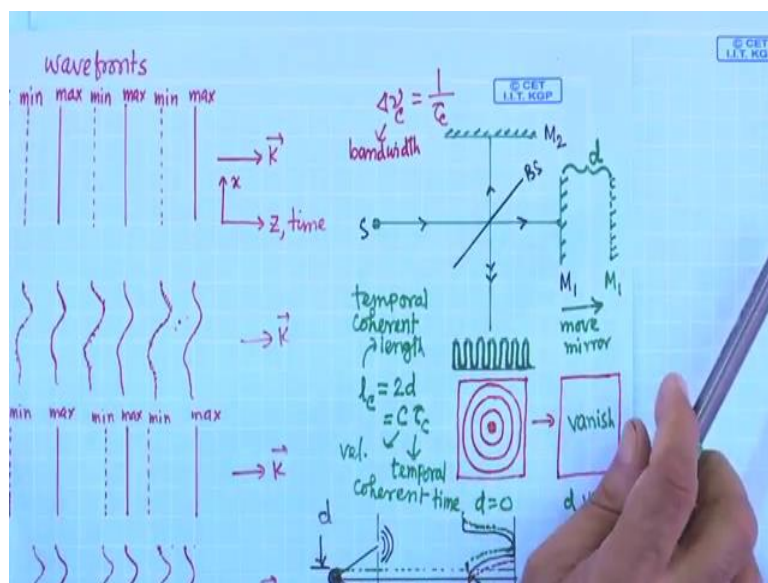 wavefronts
min max min max min max
K
x
Z, time
K
min max min max min max
K
Δν_c = 1/τ_c
bandwidth
© CET
I.I.T. KGP
© CET
I.I.T. KGP
M₂
BS
d
S
M₁ M₁
move
mirror
temporal
coherent
length
l_c = 2d
= C τ_c
vel.
temporal
coherent time
vanish
d=0
d
d